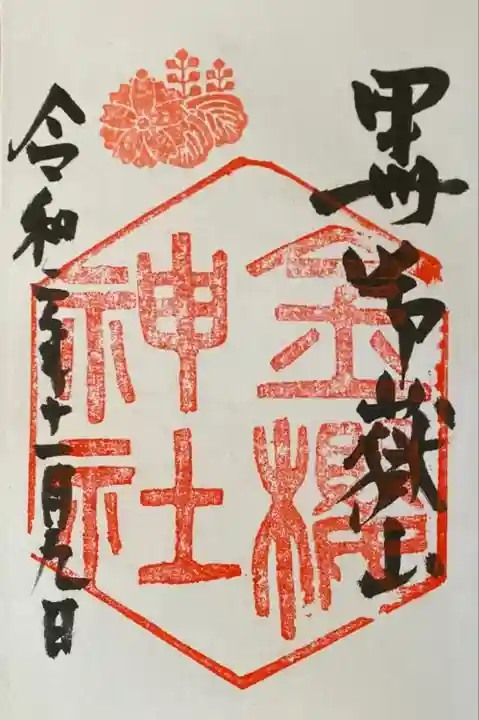 甲州
御嶽山
金櫻
神社
令和年十一月九日